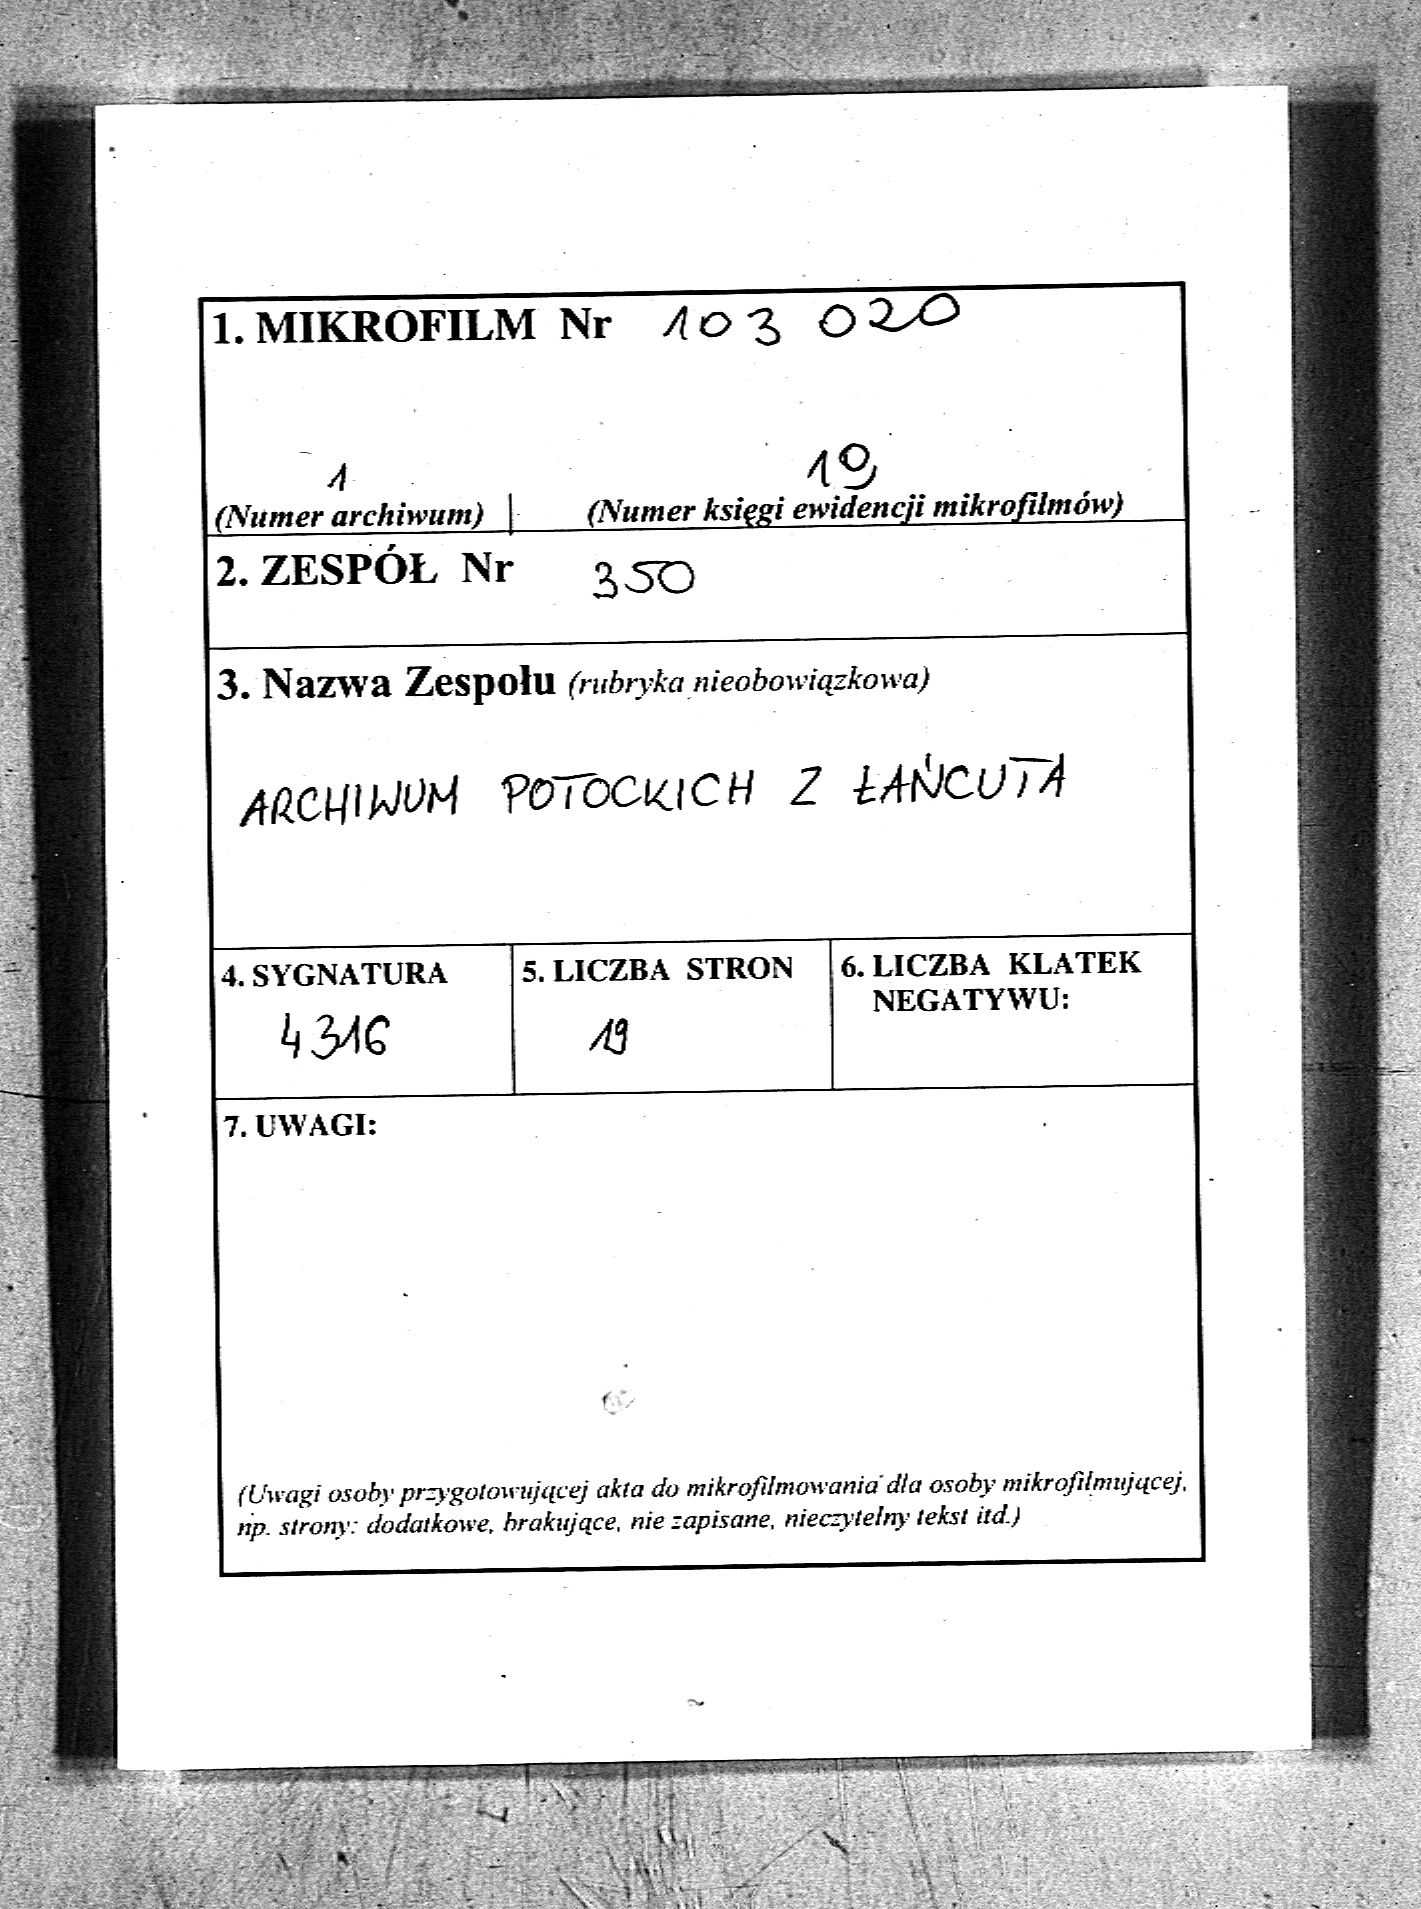 1. MIKROFILM Nr 103 020
1 19
(Numer archiwum) (Numer księgi ewidencji mikrofilmów)
2. ZESPÓŁ Nr 350
3. Nazwa Zespołu (rubryka nieobowiązkowa)
ARCHIWUM POTOCKICH Z ŁAŃCUTA
4. SYGNATURA 5. LICZBA STRON 6. LICZBA KLATEK
NEGATYWU:
4316 19
7. UWAGI:
(Uwagi osoby przygotowującej akta do mikrofilmowania dla osoby mikrofilmującej,
np. strony: dodatkowe, brakujące, nie zapisane, nieczytelny tekst itd.)